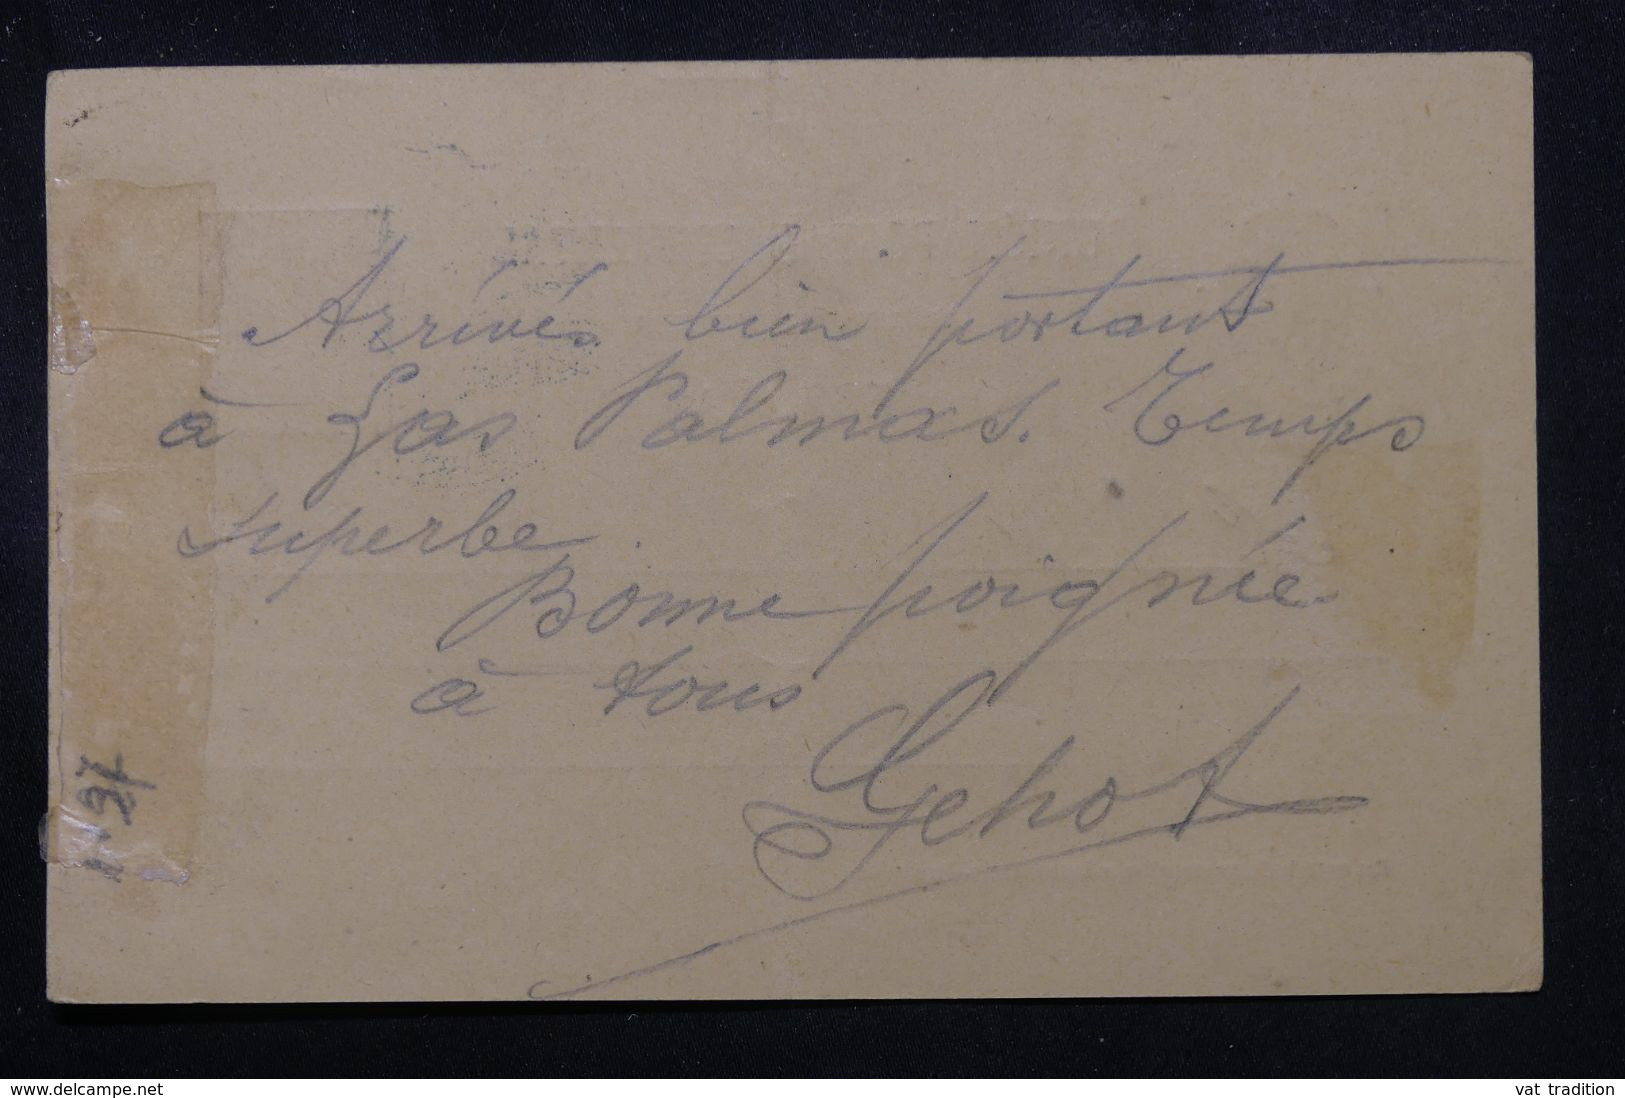 Arrivés bien portant
à Las Palmas. Temps
superbe.
Bonne poignée
à tous
Gehot
delcampe.net
vat tradition